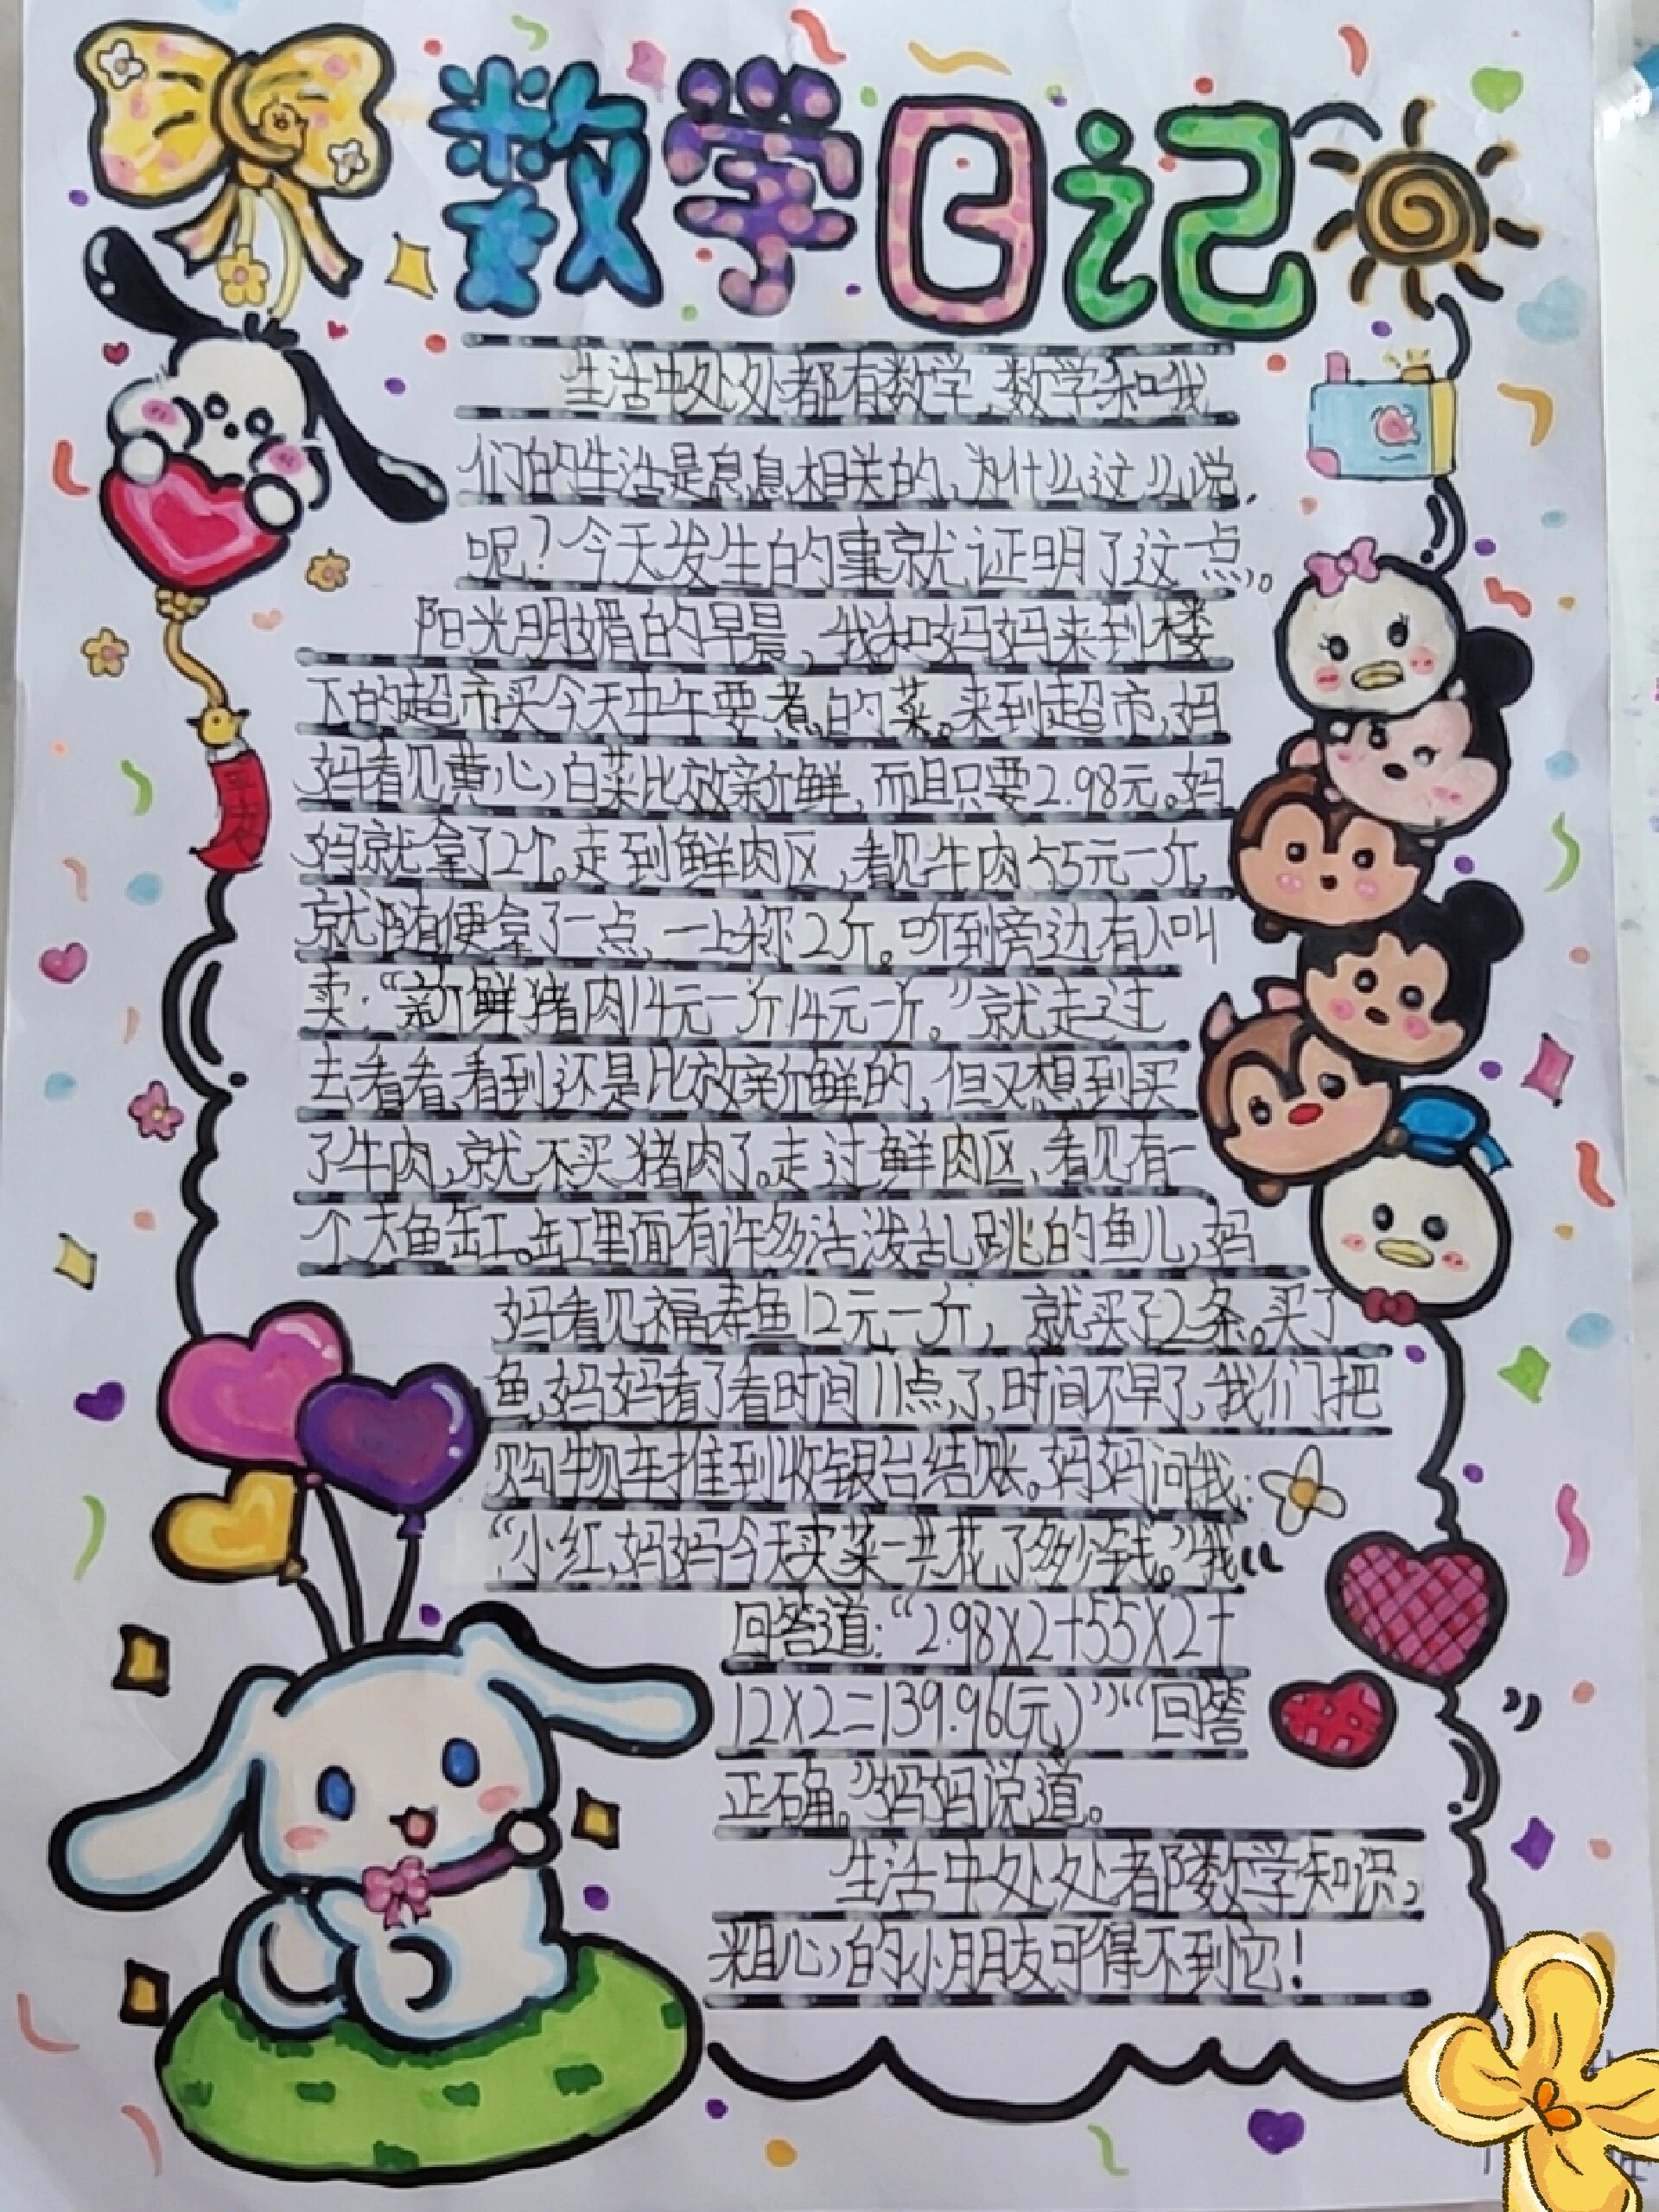 数学日记
生活中处处都有数学,数学和我
们的生活是息息相关的,为什么这么说
呢?今天发生的事就证明了这一点。
阳光明媚的早晨,我和妈妈来到楼
下的超市买今天中午要煮的菜。来到超市,妈
妈看见黄心白菜比较新鲜,而且只要2.98元。妈
妈就拿了2个。走到鲜肉区,看见牛肉55元一斤,
就随便拿了一点,一上称2斤。听到旁边有人叫
卖:“新鲜猪肉14元一斤14元一斤。”就走过
去看看,看到还是比较新鲜的,但又想到买
了牛肉,就不买猪肉了。走过鲜肉区,看见有一
个大鱼缸。缸里面有许多活泼乱跳的鱼儿,妈
妈看见福寿鱼12元一斤,就买了2条。买了
鱼,妈妈看了看时间11点了,时间不早了,我们把
购物车推到收银台结账。妈妈问我:
“小红,妈妈今天买菜一共花了多少钱。”我
回答道:“2.98×2+55×2+
12×2=139.96(元)”“回答
正确。”妈妈说道。
生活中处处者数学知识,
粗心的小朋友可得不到它!